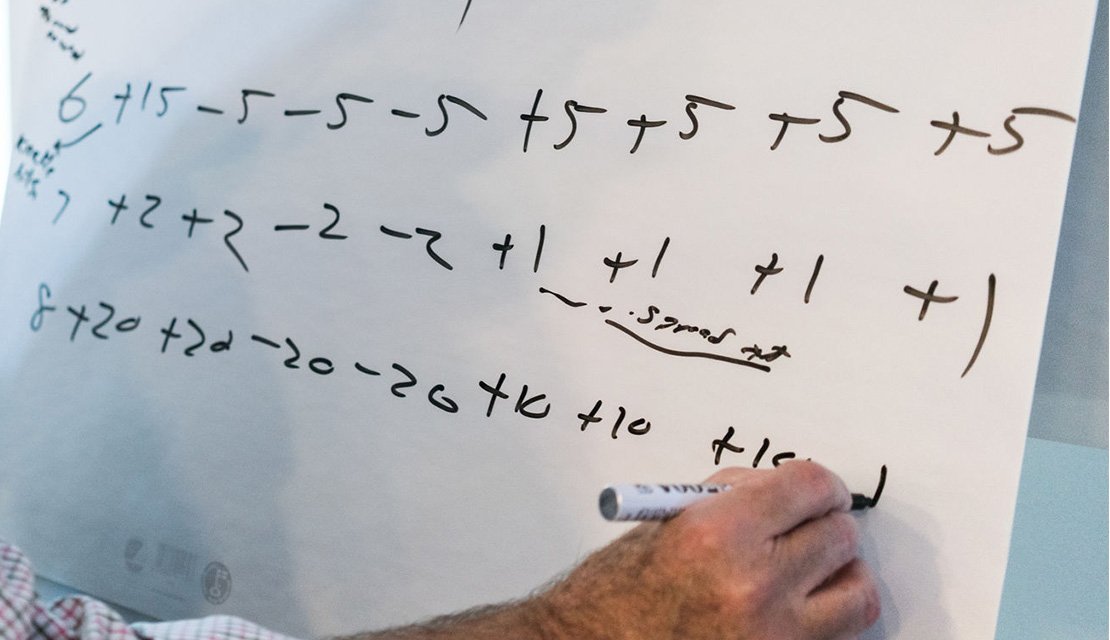 6 +15 -5 -5 -5 +5 +5 +5 +5
7 +2 +2 -2 -2 +1 +1 +1 +1
8 +20 +20 -20 -20 +10 +10 +10